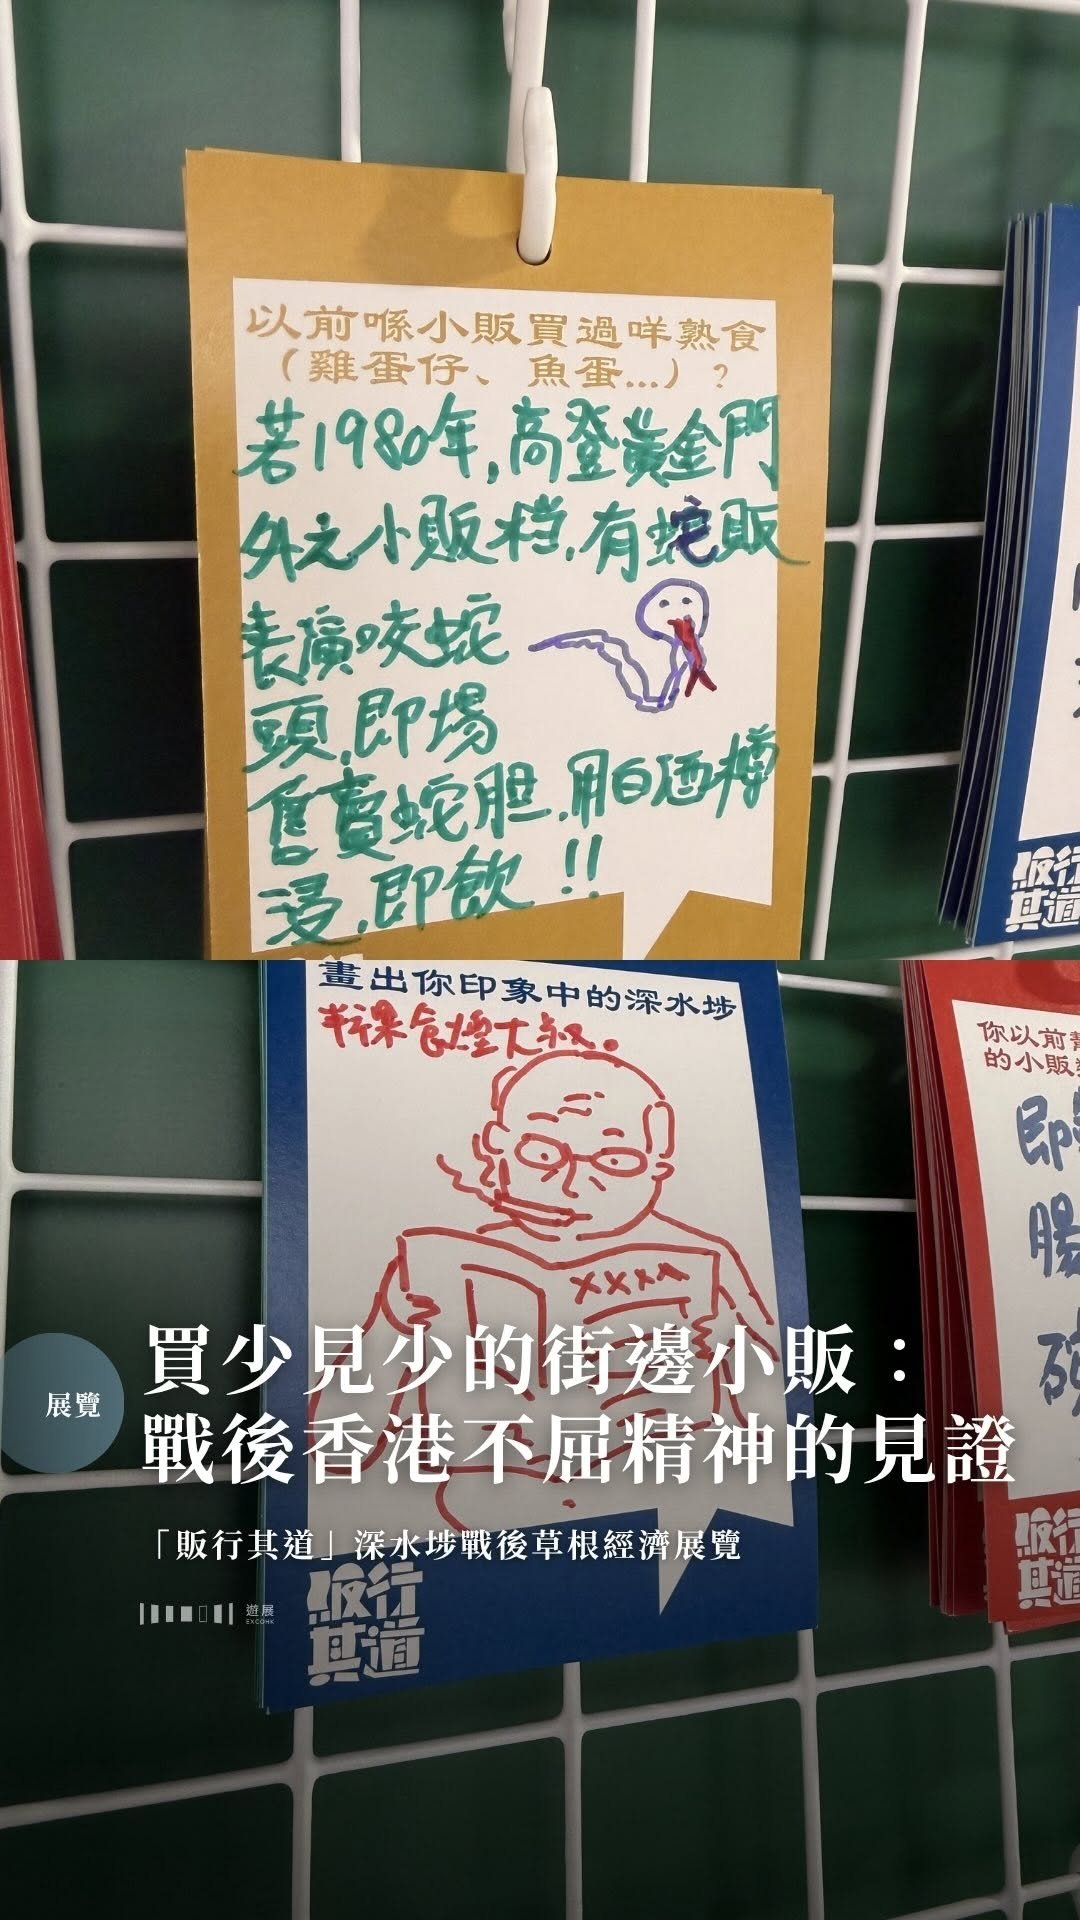 以前喺小販買過咩熟食
（雞蛋仔、魚蛋...）？
若1980年,高登黃金門
外之小販档,有蛇販
表演咬蛇
頭,即場
售賣蛇胆,用白酒樽
浸,即飲!!
畫出你印象中的深水埗
半裸食煙大叔。
XXXX
你以前
的小販
即
腸
販行
其道
販行
其道
展覽
買少見少的街邊小販：
戰後香港不屈精神的見證
「販行其道」深水埗戰後草根經濟展覽
遊展
EXCOHK
販行
其道